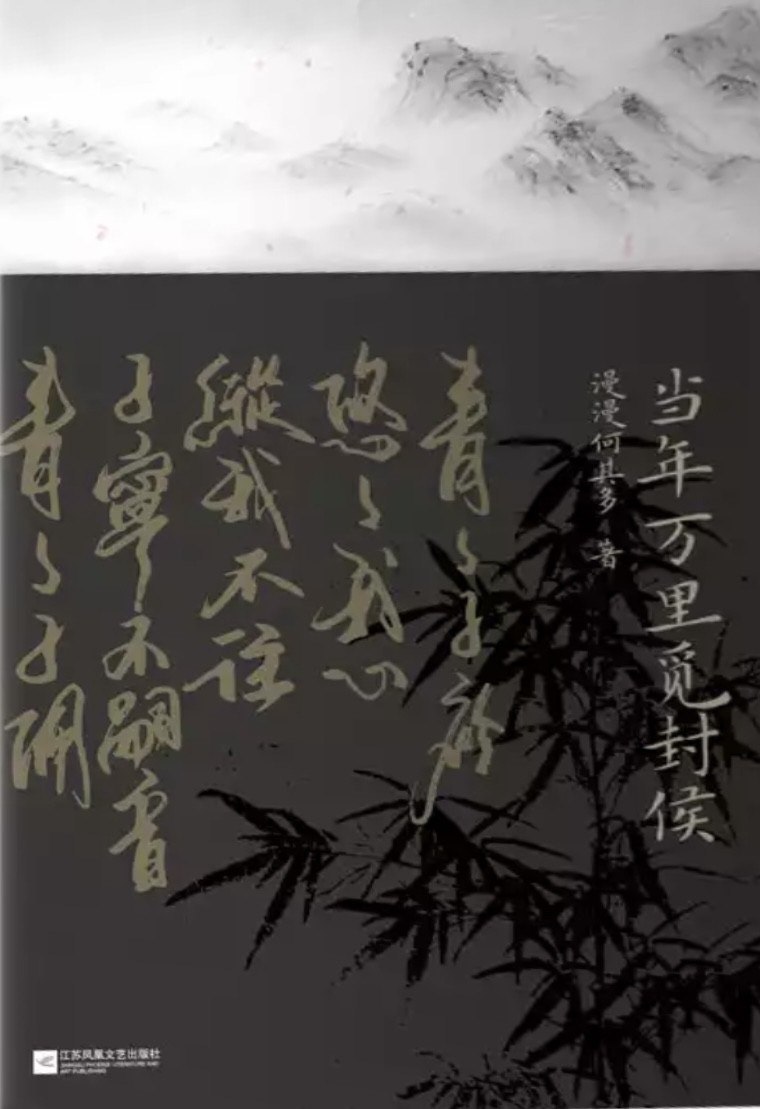 当年万里觅封侯
漫漫何其多 著
青々子衿
悠々我心
縱我不往
子寧不嗣音
青々子佩
江苏凤凰文艺出版社
JIANGSU PHOENIX LITERATURE AND
ART PUBLISHING